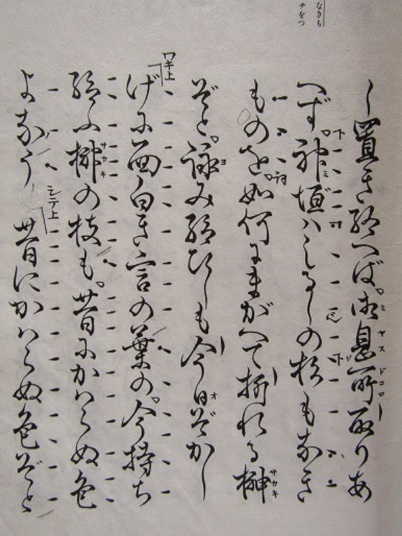 なきも
チをつ
し置き給へば。御息所取りあ
へず。神垣ハしるしの杉もなき
ものを。如何にまがへて折れる榊
ぞと。詠み給ひしも今日ぞかし
ワキ上 げに面白き言の葉の。今持ち
給ふ榊の枝も。昔にかハらぬ色
よなう シテ上 昔にかハらぬ色ぞと